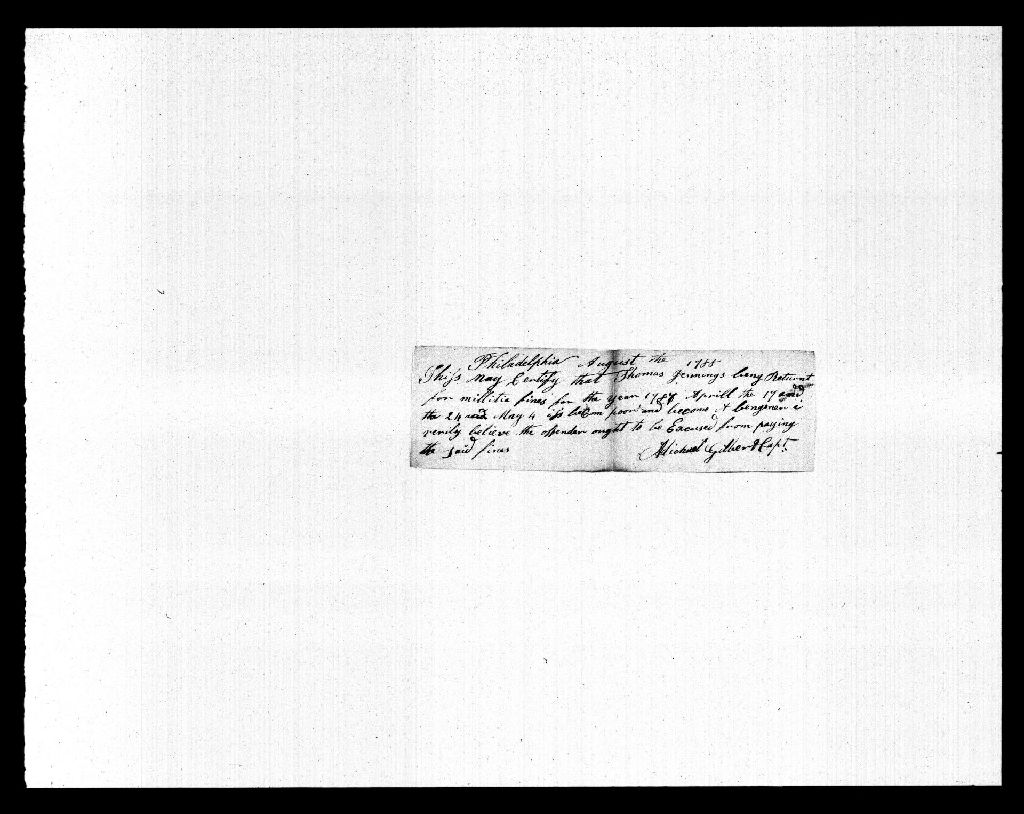 Philadelphia August the 1788
Thiss May Certify that Thomas Jennings being Returnt
for millitia fines for the year 1788 Aprill the 17 and
the 24 and May 4 is poor and &
verily believe the offender ought to be Excused from paying
the said fines Michael Gilbert Capt.